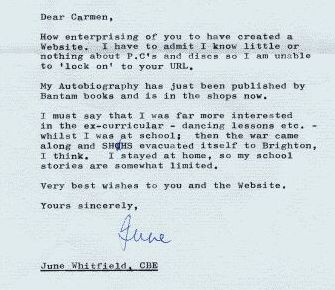 Dear Carmen,
How enterprising of you to have created a
Website. I have to admit I know little or
nothing about P.C's and discs so I am unable
to 'lock on' to your URL.
My Autobiography has just been published by
Bantam books and is in the shops now.
I must say that I was far more interested
in the ex-curricular - dancing lessons etc. -
whilst I was at school; then the war came
along and SHHS evacuated itself to Brighton,
I think. I stayed at home, so my school
stories are somewhat limited.
Very best wishes to you and the Website.
Yours sincerely,
June
June Whitfield, CBE